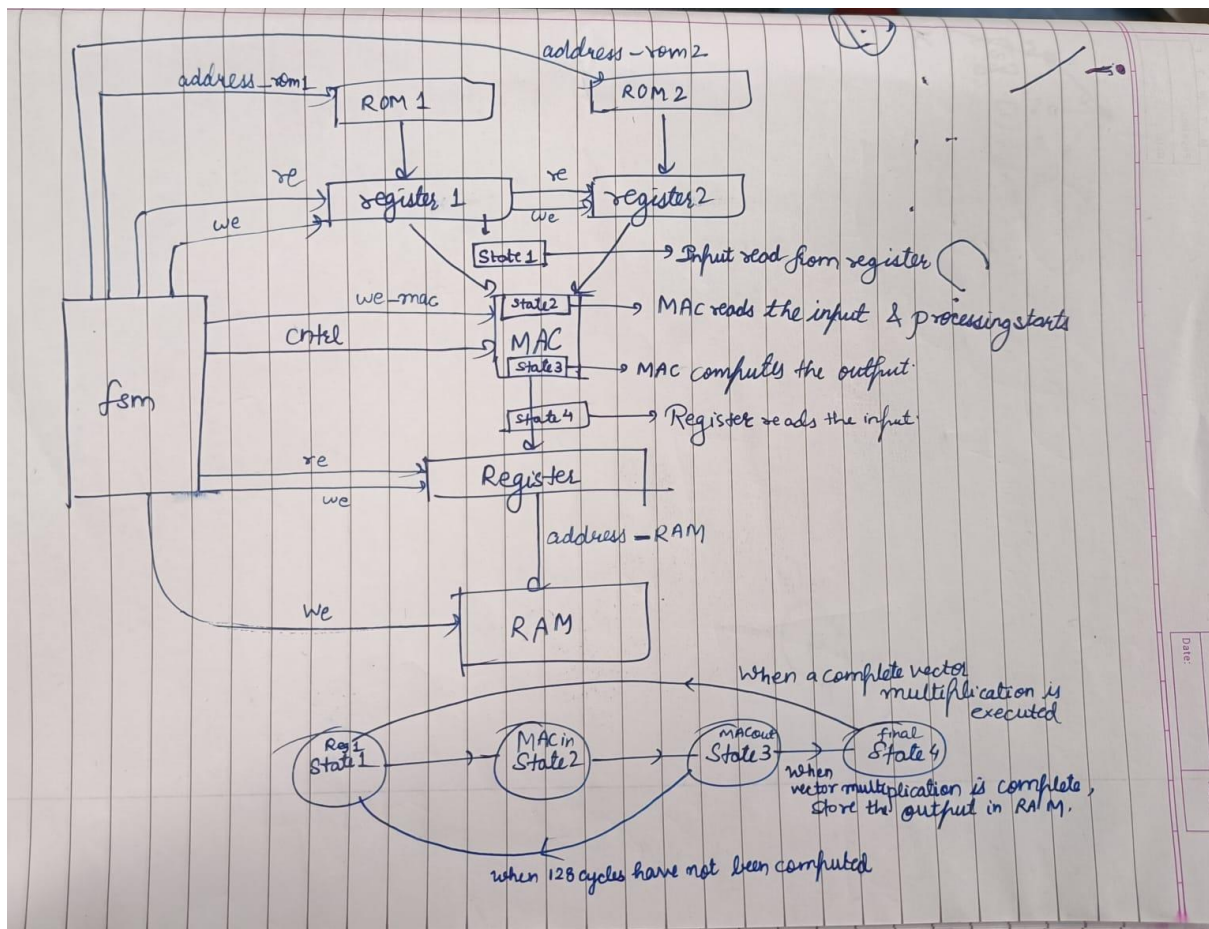 address-rom2
address_rom1
ROM 1
ROM 2
re
re
register 1
register 2
we
we
State 1
Input read from register
we_mac
State2
MAC reads the input & processing starts
Cntrl
MAC
State3
MAC computes the output.
fsm
State 4
Register reads the input.
re
Register
we
address-RAM
We
RAM
Date:
When a complete vector
multiplication is
executed
Reg1
State 1
MACin
State 2
MACout
State 3
final
State 4
When
vector multiplication is complete,
store the output in RAM.
when 128 cycles have not been computed